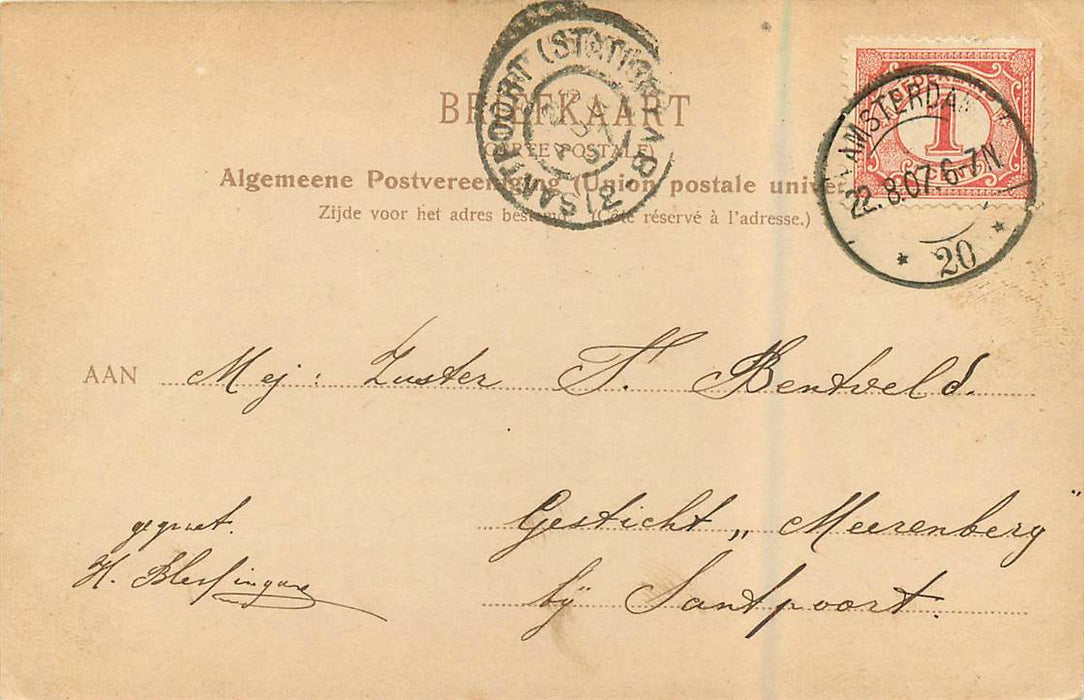 BRIEFKAART
(CARTE POSTALE)
Algemeene Postvereeniging (Union postale univer
Zijde voor het adres bestemd. (Côté réservé à l'adresse.)
SANTPOORT (STATION)
NEDERLAND
1
CENT
AMSTERDAM
22.8.07.6-7N
* 20 *
AAN Mej: Zuster F. Bentveld.
Gesticht „Meerenberg"
bij Santpoort.
gegroet.
H.